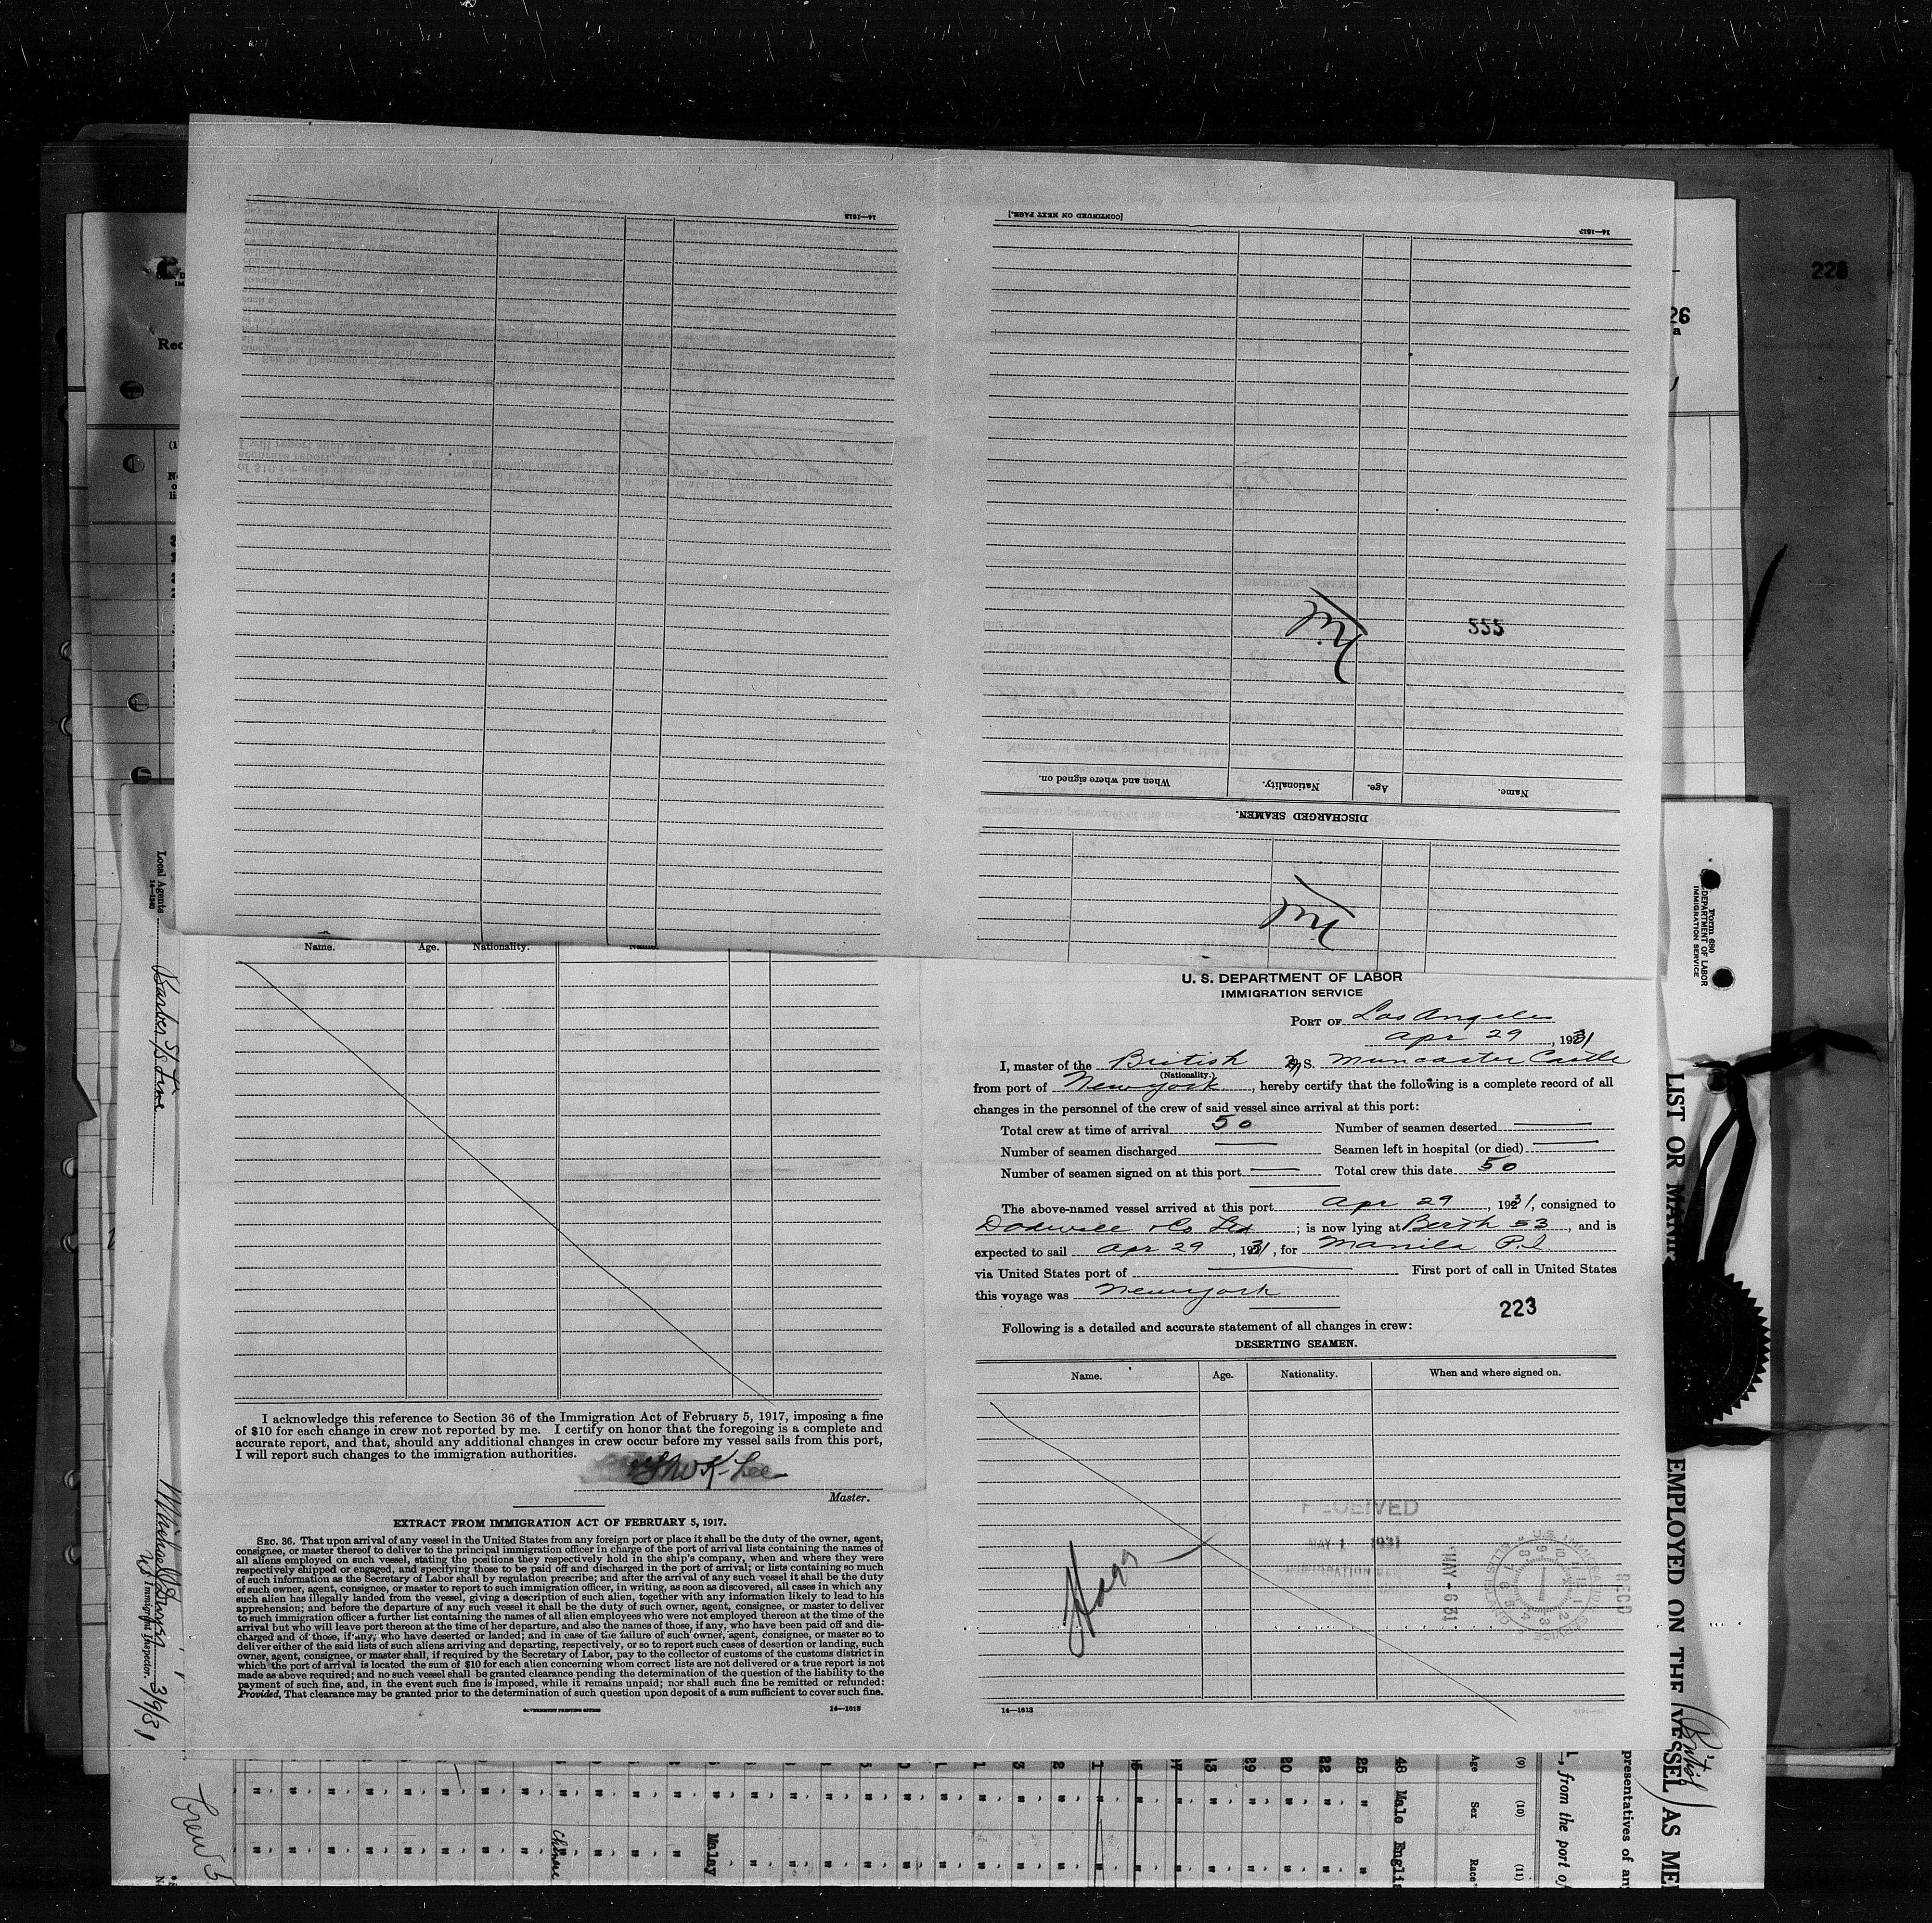 14—1613
[CONTINUED ON NEXT PAGE.]
14—1613
222
Nil
Name.
Age.
Nationality.
When and where signed on.
DISCHARGED SEAMEN.
Nil
228
26
Rec
Name. Age. Nationality.
I acknowledge this reference to Section 36 of the Immigration Act of February 5, 1917, imposing a fine
of $10 for each change in crew not reported by me. I certify on honor that the foregoing is a complete and
accurate report, and that, should any additional changes in crew occur before my vessel sails from this port,
I will report such changes to the immigration authorities.
Lee
Master.
EXTRACT FROM IMMIGRATION ACT OF FEBRUARY 5, 1917.
SEC. 36. That upon arrival of any vessel in the United States from any foreign port or place it shall be the duty of the owner, agent,
consignee, or master thereof to deliver to the principal immigration officer in charge of the port of arrival lists containing the names of
all aliens employed on such vessel, stating the positions they respectively hold in the ship's company, when and where they were
respectively shipped or engaged, and specifying those to be paid off and discharged in the port of arrival; or lists containing so much
of such information as the Secretary of Labor shall by regulation prescribe; and after the arrival of any such vessel it shall be the duty
of such owner, agent, consignee, or master to report to such immigration officer, in writing, as soon as discovered, all cases in which any
such alien has illegally landed from the vessel, giving a description of such alien, together with any information likely to lead to his
apprehension; and before the departure of any such vessel it shall be the duty of such owner, agent, consignee, or master to deliver
to such immigration officer a further list containing the names of all alien employees who were not employed thereon at the time of the
arrival but who will leave port thereon at the time of her departure, and also the names of those, if any, who have been paid off and dis-
charged and of those, if any, who have deserted or landed; and in case of the failure of such owner, agent, consignee, or master so to
deliver either of the said lists of such aliens arriving and departing, respectively, or so to report such cases of desertion or landing, such
owner, agent, consignee, or master shall, if required by the Secretary of Labor, pay to the collector of customs of the customs district in
which the port of arrival is located the sum of $10 for each alien concerning whom correct lists are not delivered or a true report is not
made as above required; and no such vessel shall be granted clearance pending the determination of the question of the liability to the
payment of such fine, and, in the event such fine is imposed, while it remains unpaid; nor shall such fine be remitted or refunded:
Provided, That clearance may be granted prior to the determination of such question upon deposit of a sum sufficient to cover such fine.
GOVERNMENT PRINTING OFFICE 14—1613
U. S. DEPARTMENT OF LABOR
IMMIGRATION SERVICE
PORT OF Los Angeles
Apr 29, 1931
I, master of the British M. S. Muncaster Castle
(Nationality.)
from port of New york, hereby certify that the following is a complete record of all
changes in the personnel of the crew of said vessel since arrival at this port:
Total crew at time of arrival 50 Number of seamen deserted
Number of seamen discharged Seamen left in hospital (or died)
Number of seamen signed on at this port Total crew this date 50
The above-named vessel arrived at this port Apr 29, 1931, consigned to
Dodwell & Co Ltd; is now lying at Berth 53, and is
expected to sail Apr 29, 1931, for Manila P.I.
via United States port of First port of call in United States
this voyage was New york
223
Following is a detailed and accurate statement of all changes in crew:
DESERTING SEAMEN.
Name. Age. Nationality. When and where signed on.
RECEIVED
MAY 1 1931
MAY - 6 31
REC'D
14—1613
Local Agents
14—1240
Barber S/S Line
U.S. Immigrant Inspector.
3/9/31
Crew
Form 680
DEPARTMENT OF LABOR
IMMIGRATION SERVICE
LIST OR
EMPLOYED ON THE VESSEL AS
British
presentatives of
, from the port of
(9) (10) (11)
Age Sex Race
48 Male
25
22
20
29
Malay
Chinese